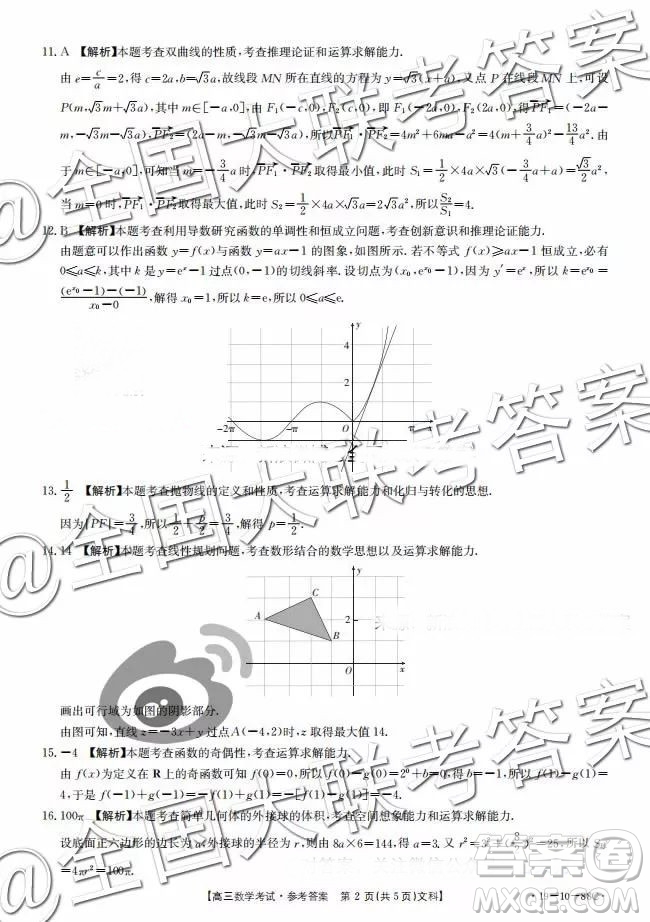 11. A 【解析】本题考查双曲线的性质,考查推理论证和运算求解能力.
由 e=c/a=2,得 c=2a,b=√3a,故线段 MN 所在直线的方程为 y=√3(x+a),又点 P 在线段 MN 上,可设
P(m,√3m+√3a),其中 m∈[-a,0],由 F₁(-c,0),F₂(c,0),即 F₁(-2a,0),F₂(2a,0),得PF₁=(-2a-
m,-√3m-√3a),PF₂=(2a-m,-√3m-√3a),所以PF₁·PF₂=4m²+6ma-a²=4(m+3/4a)²-13/4a².由
于 m∈[-a,0],可知当 m=-3/4a 时,PF₁·PF₂取得最小值,此时 S₁=1/2×4a×√3(-3/4a+a)=√3/2a²,
当 m=0 时,PF₁·PF₂取得最大值,此时 S₂=1/2×4a×√3a=2√3a²,所以S₂/S₁=4.
12. B 【解析】本题考查利用导数研究函数的单调性和恒成立问题,考查创新意识和推理论证能力.
由题意可以作出函数 y=f(x)与函数 y=ax-1 的图象,如图所示.若不等式 f(x)≥ax-1 恒成立,必有
0≤a≤k,其中 k 是 y=eˣ-1 过点(0,-1)的切线斜率.设切点为(x₀,e^x₀-1),因为 y′=eˣ,所以 k=e^x₀=
((e^x₀-1)-(-1))/(x₀-0),解得 x₀=1,所以 k=e,所以 0≤a≤e.
y
4
2
-2π
-π
O
π
x
13. 1/2 【解析】本题考查抛物线的定义和性质,考查运算求解能力和化归与转化的思想.
因为|PF|=3/4,所以1/2+p/2=3/4,解得 p=1/2.
14. 14 【解析】本题考查线性规划问题,考查数形结合的数学思想以及运算求解能力.
y
C
A
2
B
O
x
画出可行域为如图的阴影部分.
由图可知,直线 z=-3x+y 过点 A(-4,2)时,z 取得最大值 14.
15. -4 【解析】本题考查函数的奇偶性,考查运算求解能力.
由 f(x)为定义在 R 上的奇函数可知 f(0)=0,所以 f(0)-g(0)=2⁰+b=0,得 b=-1,所以 f(1)-g(1)=4,
于是 f(-1)+g(-1)=-f(1)+g(1)=-[f(1)-g(1)]=-4.
16. 100π 【解析】本题考查简单几何体的外接球的体积,考查空间想象能力和运算求解能力.
设底面正六边形的边长为 a,外接球的半径为 r,则由 8a×6=144,得 a=3.又
=25,所以 S=
4πr²=100π.
【高三数学考试·参考答案 第 2 页(共 5 页)文科】
·19-10-88C·
@全国大联考答案
@全国大联考答案
@全国大联考答案